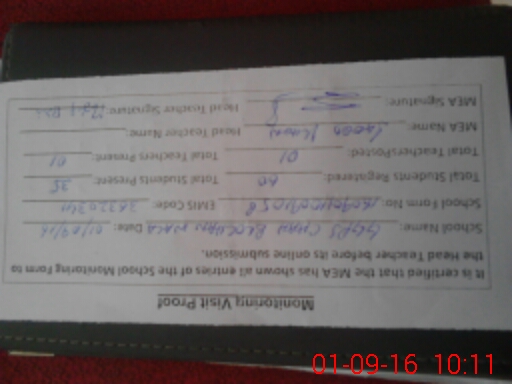 Monitoring Visit Proof
It is certified that the MEA has shown all entries of the School Monitoring Form to
the Head Teacher before its online submission.
School Name: GGPS CHAH BLOCHAN WALA Date: 01/09/16
School Form No: EMIS Code:
Total Students Registered: 60 Total Students Present: 35
Total TeachersPosted: 01 Total Teachers Present: 01
MEA Name: Head Teacher Name:
MEA Signature: Head Teacher Signature:
01-09-16 10:11